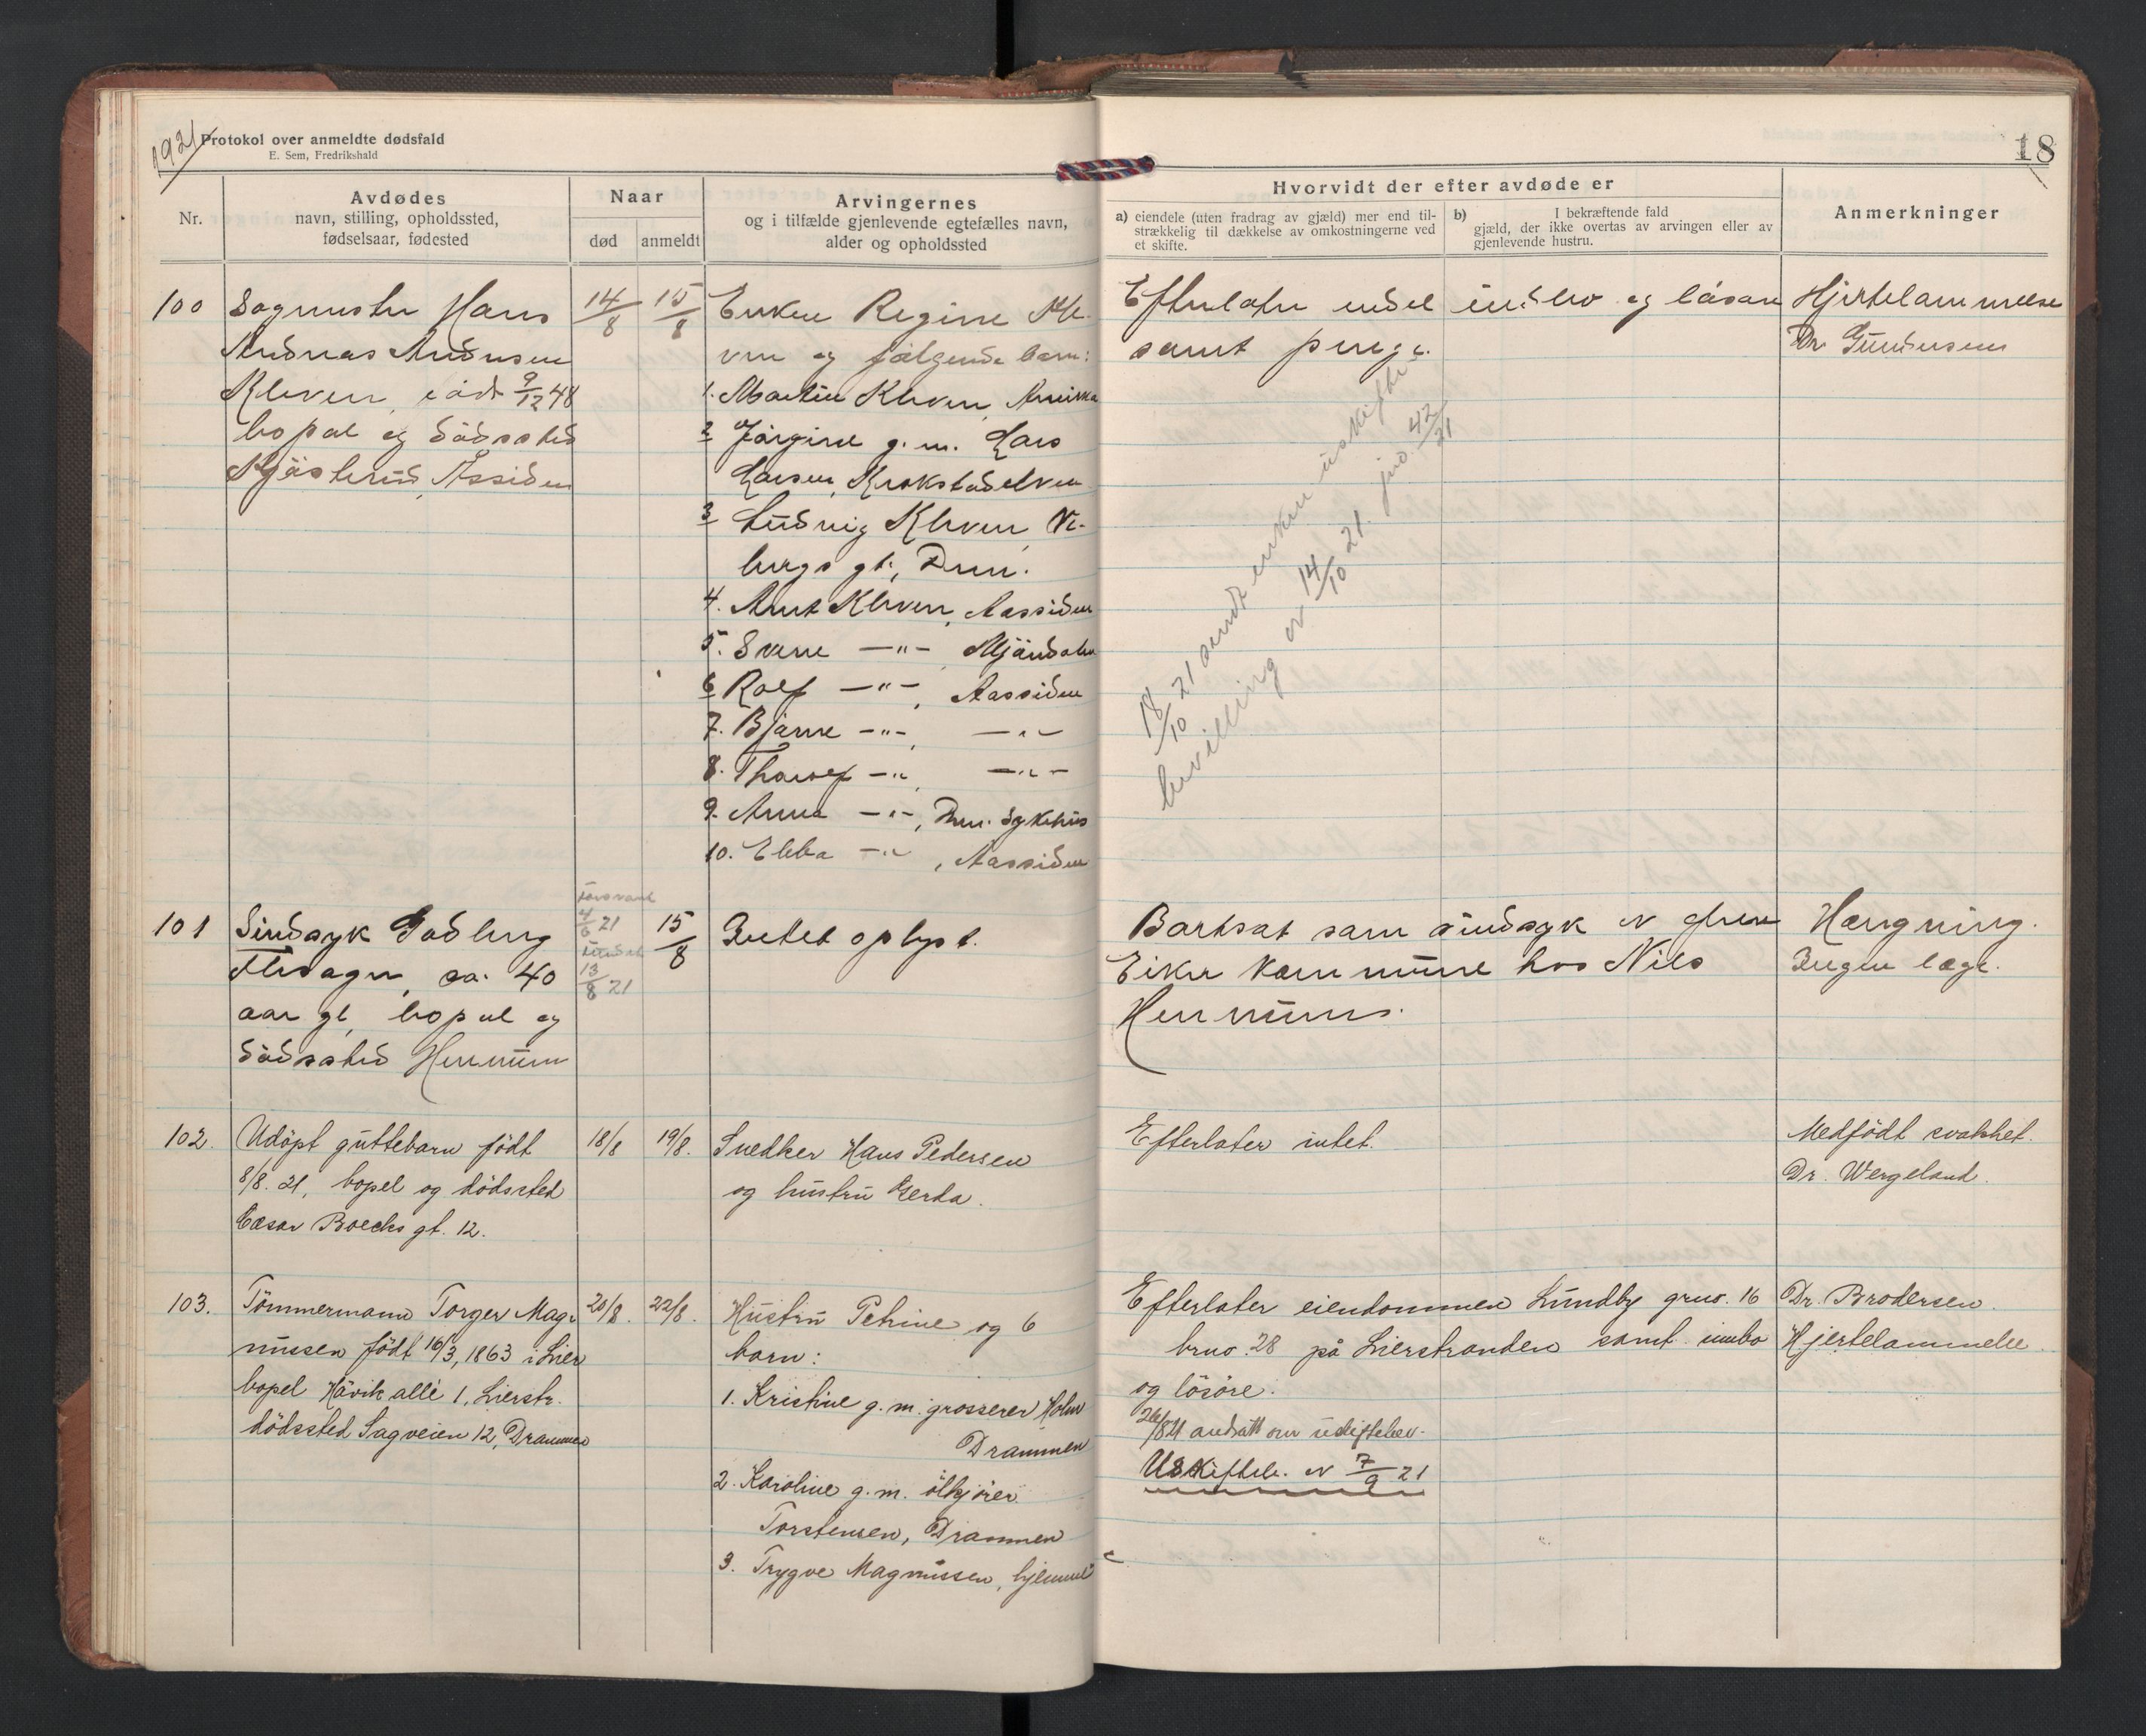 1921
Protokol over anmeldte dødsfald
E. Sem, Fredrikshald
18
Nr.
Avdødes
navn, stilling, opholdssted,
fødselsaar, fødested
Naar
død
anmeldt
Arvingernes
og i tilfælde gjenlevende egtefælles navn,
alder og opholdssted
Hvorvidt der efter avdøde er
a) eiendele (uten fradrag av gjæld) mer end til-
strækkelig til dækkelse av omkostningerne ved
et skifte.
b) I bekræftende fald
gjæld, der ikke overtas av arvingen eller av
gjenlevende hustru.
Anmerkninger
100
Sagmester Hans
Andreas Andersen
Kleven, født 9/12 48
bopæl og dødssted
Kjøsterud, Åssiden
14/8
15/8
Enken Regine Kle-
ven og følgende barn:
1. Martin Kleven, Amerika
2 Jørgine g. m. Lars
Larsen, Krokstadelven
3 Ludvig Kleven, Vi-
bergs gt., Drm.
4. Arnt Kleven, Aassiden
5. Sverre —"— Mjøndalen
6 Rolf —"—, Aassiden
7. Bjarne —"—, —"—
8. Thorolf —"—, —"—
9. Anna —"—, Drm. Sykehus
10. Ebba —"—, Aassiden
Efterlater endel indbo og løsøre
samt penge.
18/10 21 sendt enken uskifte-
bevilling av 14/10 21. jno. 42/21
Hjertelammelse
Dr Gundersen
101
Sindsyk Gudberg
ca. 40
aar gl, bopæl og
dødssted Hennum
4/6 21
13/8 21
15/8
Intet oplyst.
Bortsat som sindsyk av Øvre
Eiker kommune hos Nils
Hennum.
Hængning.
Ingen læge.
102.
Udøpt guttebarn født
8/8. 21, bopel og dødssted
Cæsar Boecks gt. 12.
18/8
19/8.
Snedker Hans Pedersen
og hustru Gerda.
Efterlater intet.
Medfødt svakhet.
Dr. Wergeland.
103.
Tømmermann Torger Mag-
nussen født 16/3, 1863 i Lier
bopel Håvik allé 1, Lierstr.
dødssted Sagveien 12, Drammen
20/8.
22/8.
Hustru Petrine og 6
barn:
1. Kristine g. m. grosserer Holm
Drammen
2. Karoline g. m. ølkjører
Torstensen, Drammen
3. Trygve Magnussen, hjemme
Efterlater eiendommen Lundby gno. 16
bno. 28 på Lierstranden samt innbo
og løsøre.
26/8 21 andratt om uskiftebev.
Uskifteb. av 7/9 21
Dr. Brodersen.
Hjertelammelse.